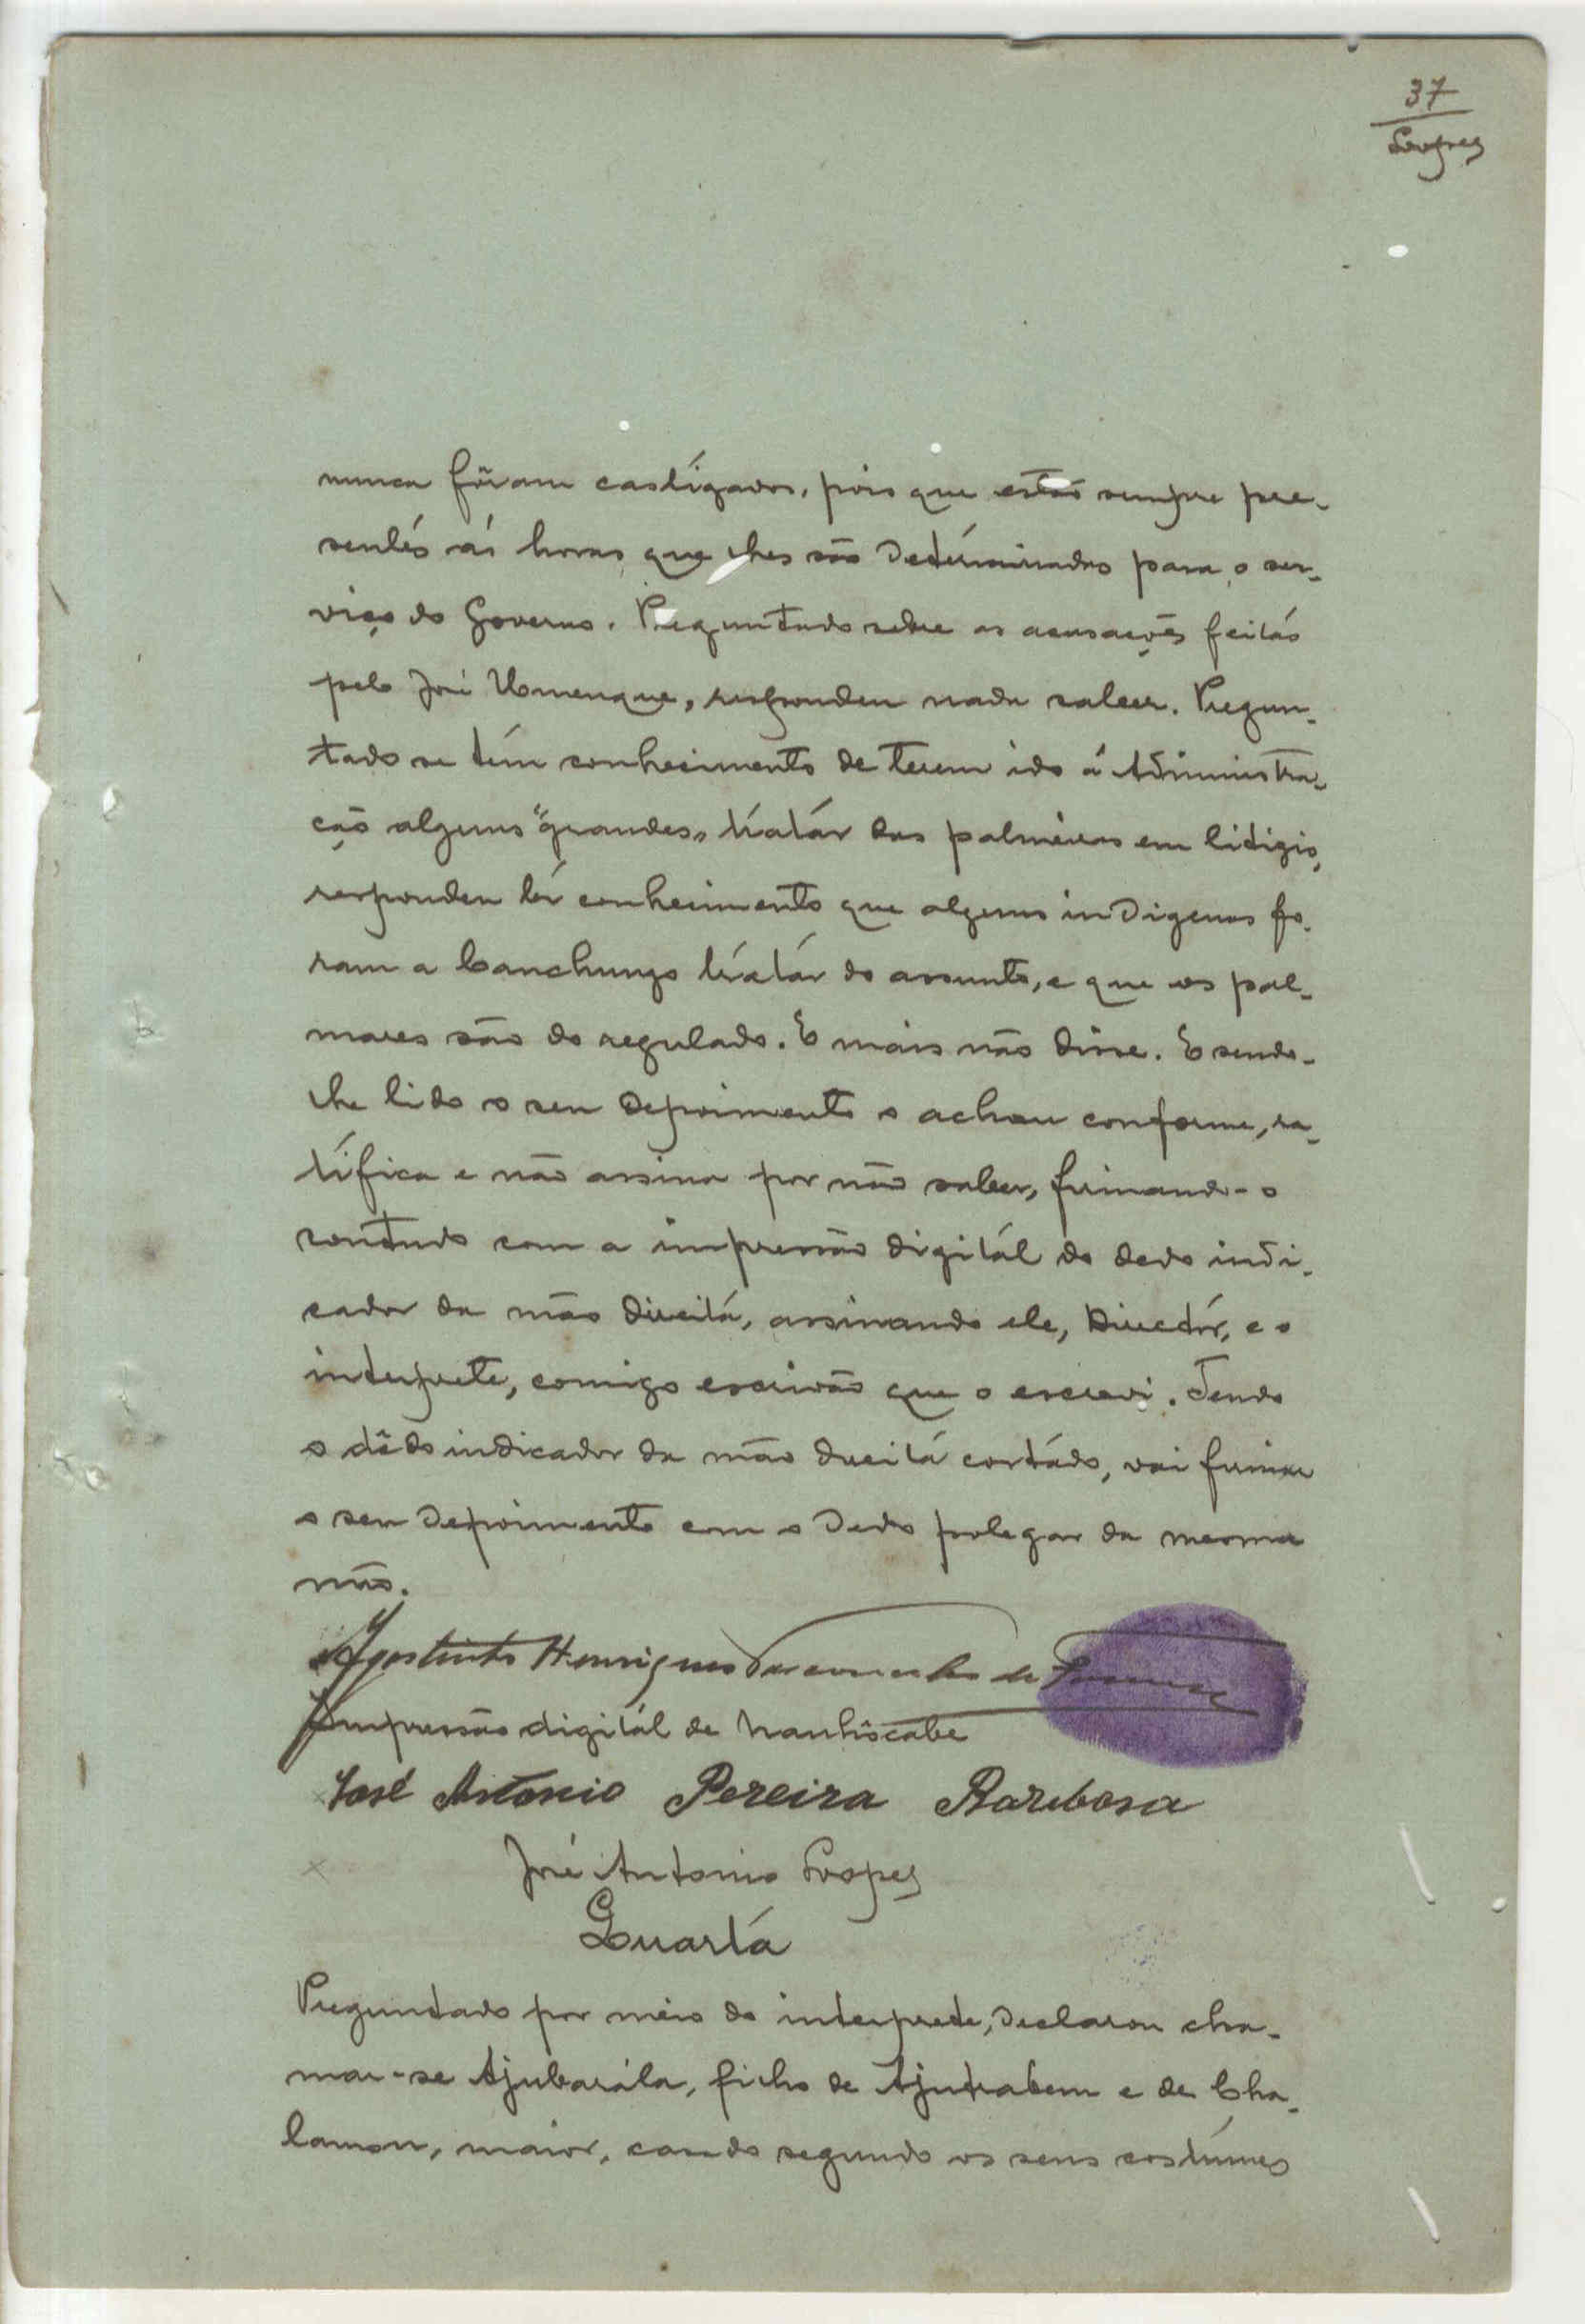 37
Lopes
nunca fôram castigados, pois que estão sempre pre-
sentes ás horas que lhes são determinadas para o ser-
viço do Governo. Preguntado sobre as acusações feitas
pelo José Umenque, respondeu nada saber. Pregun-
tado se tem conhecimento de terem ido á Administra-
ção alguns "grandes" tratár das palmeiras em litigio,
respondeu têr conhecimento que alguns indigenas fo-
ram a Canchungo tratár do assunto, e que os pal-
mares são do regulado. E mais não disse. E sendo-
lhe lido o seu depoimento o achou conforme, ra-
tifica e não assina por não saber, firmando-o
contudo com a impressão digitál do dedo indi-
cador da mão direita, assinando ele, Directór, e o
interprete, comigo escrivão que o escrevi. Tendo
o dêdo indicador da mão direita cortádo, vai firmar
o seu depoimento com o dedo polegar da mesma
mão.
Agostinho Henriques de
Impressão digitál de Nanhôcabe
José Antonio Pereira Barebosa
José Antonio Lopes
Quarta
Preguntado por meio do interprete, declarou cha-
mar-se Ajubarála, filho de Ajutrabem e de Cha-
lamon, maior, casado segundo os seus costumes